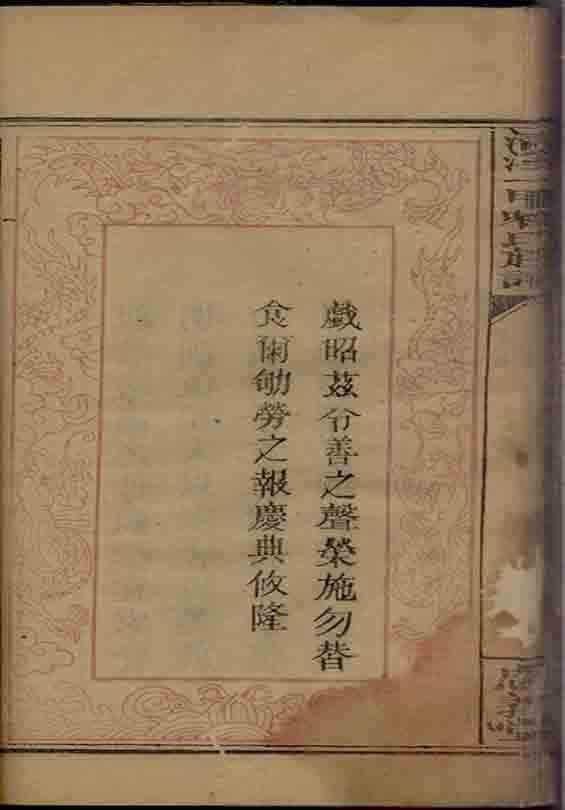 戯昭茲令善之聲榮施勿替
食爾劬勞之報慶典攸隆